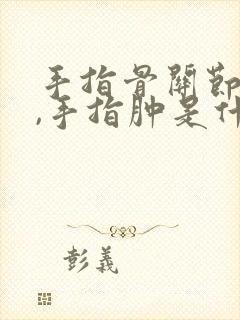 手指骨關節
,手指肿是什
彭義